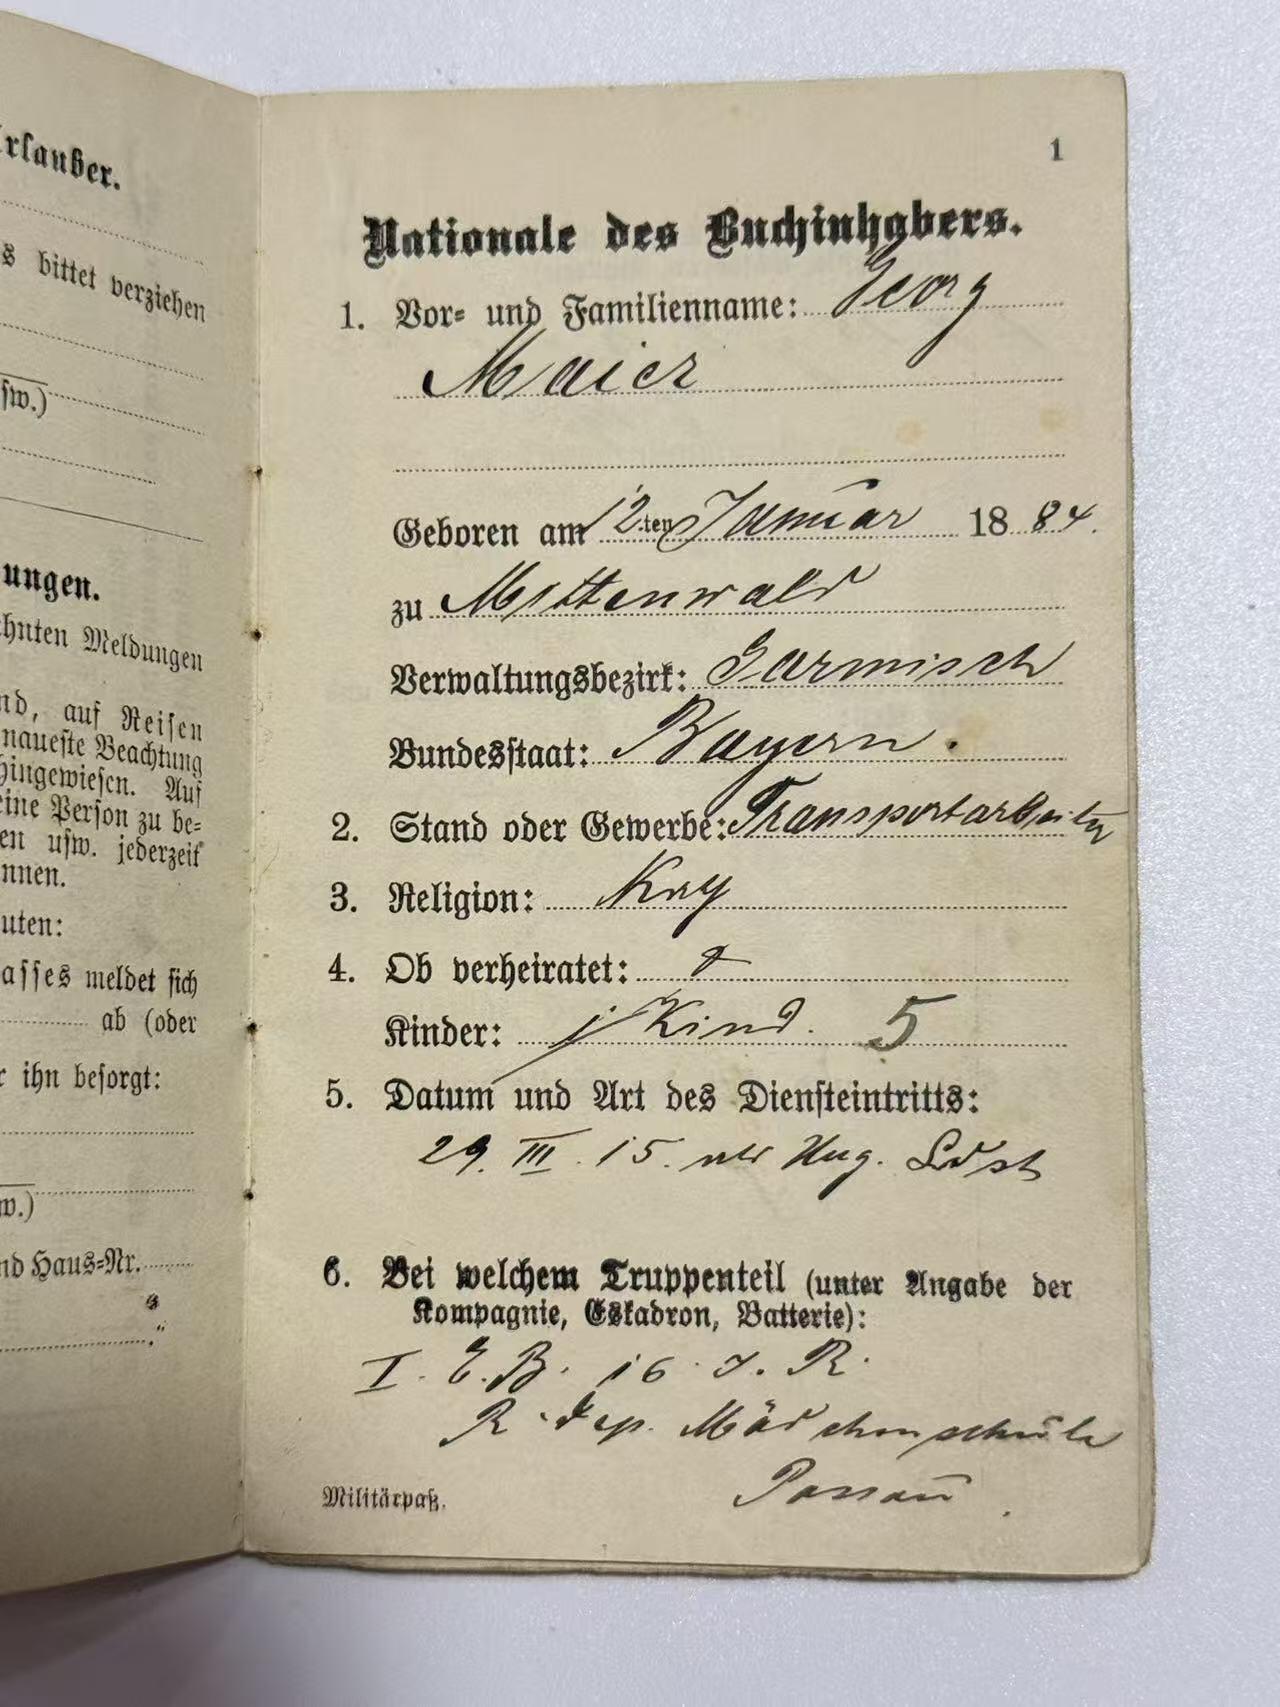 rlauber.
s bittet verziehen
ſw.)
ungen.
hnten Meldungen
nd, auf Reiſen
naueſte Beachtung
hingewieſen. Auf
eine Perſon zu be=
en uſw. jederzeit
nnen.
uten:
aſſes meldet ſich
ab (oder
r ihn beſorgt:
w.)
nd Haus=Nr.
1
Nationale des Buchinhabers.
1. Vor= und Familienname: Georg
Maier
Geboren am 12.ten Januar 1884.
zu Mittenwald
Verwaltungsbezirk: Garmisch
Bundesſtaat: Bayern.
2. Stand oder Gewerbe: Transportarbeiter
3. Religion:
4. Ob verheiratet:
Kinder: Kind. 5
5. Datum und Art des Dienſteintritts:
29. III. 15. als Ung. Ldst
6. Bei welchem Truppenteil (unter Angabe der
Kompagnie, Eskadron, Batterie):
I. E. B. 16. J. R.
R. Dep. Mädchenschule
Passau
Militärpaß.